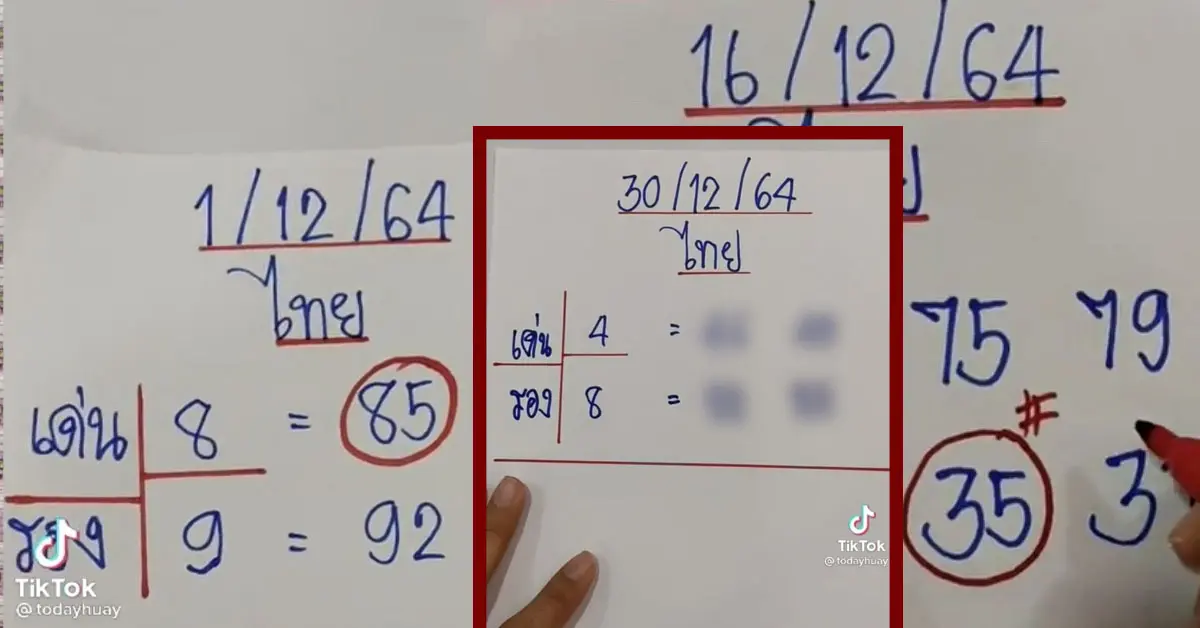 1/12/64
ไทย
เด่น 8 = 85
รอง 9 = 92
TikTok
@todayhuay
30/12/64
ไทย
เด่น 4 =
รอง 8 =
TikTok
@todayhuay
16/12/64
75 79
#
35 3